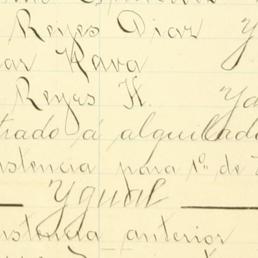 Reyes Diaz Y
ar Nava
Reyes H. Ya
trado á alquilado
istencia para 1º de
Ygual
istencia anterior